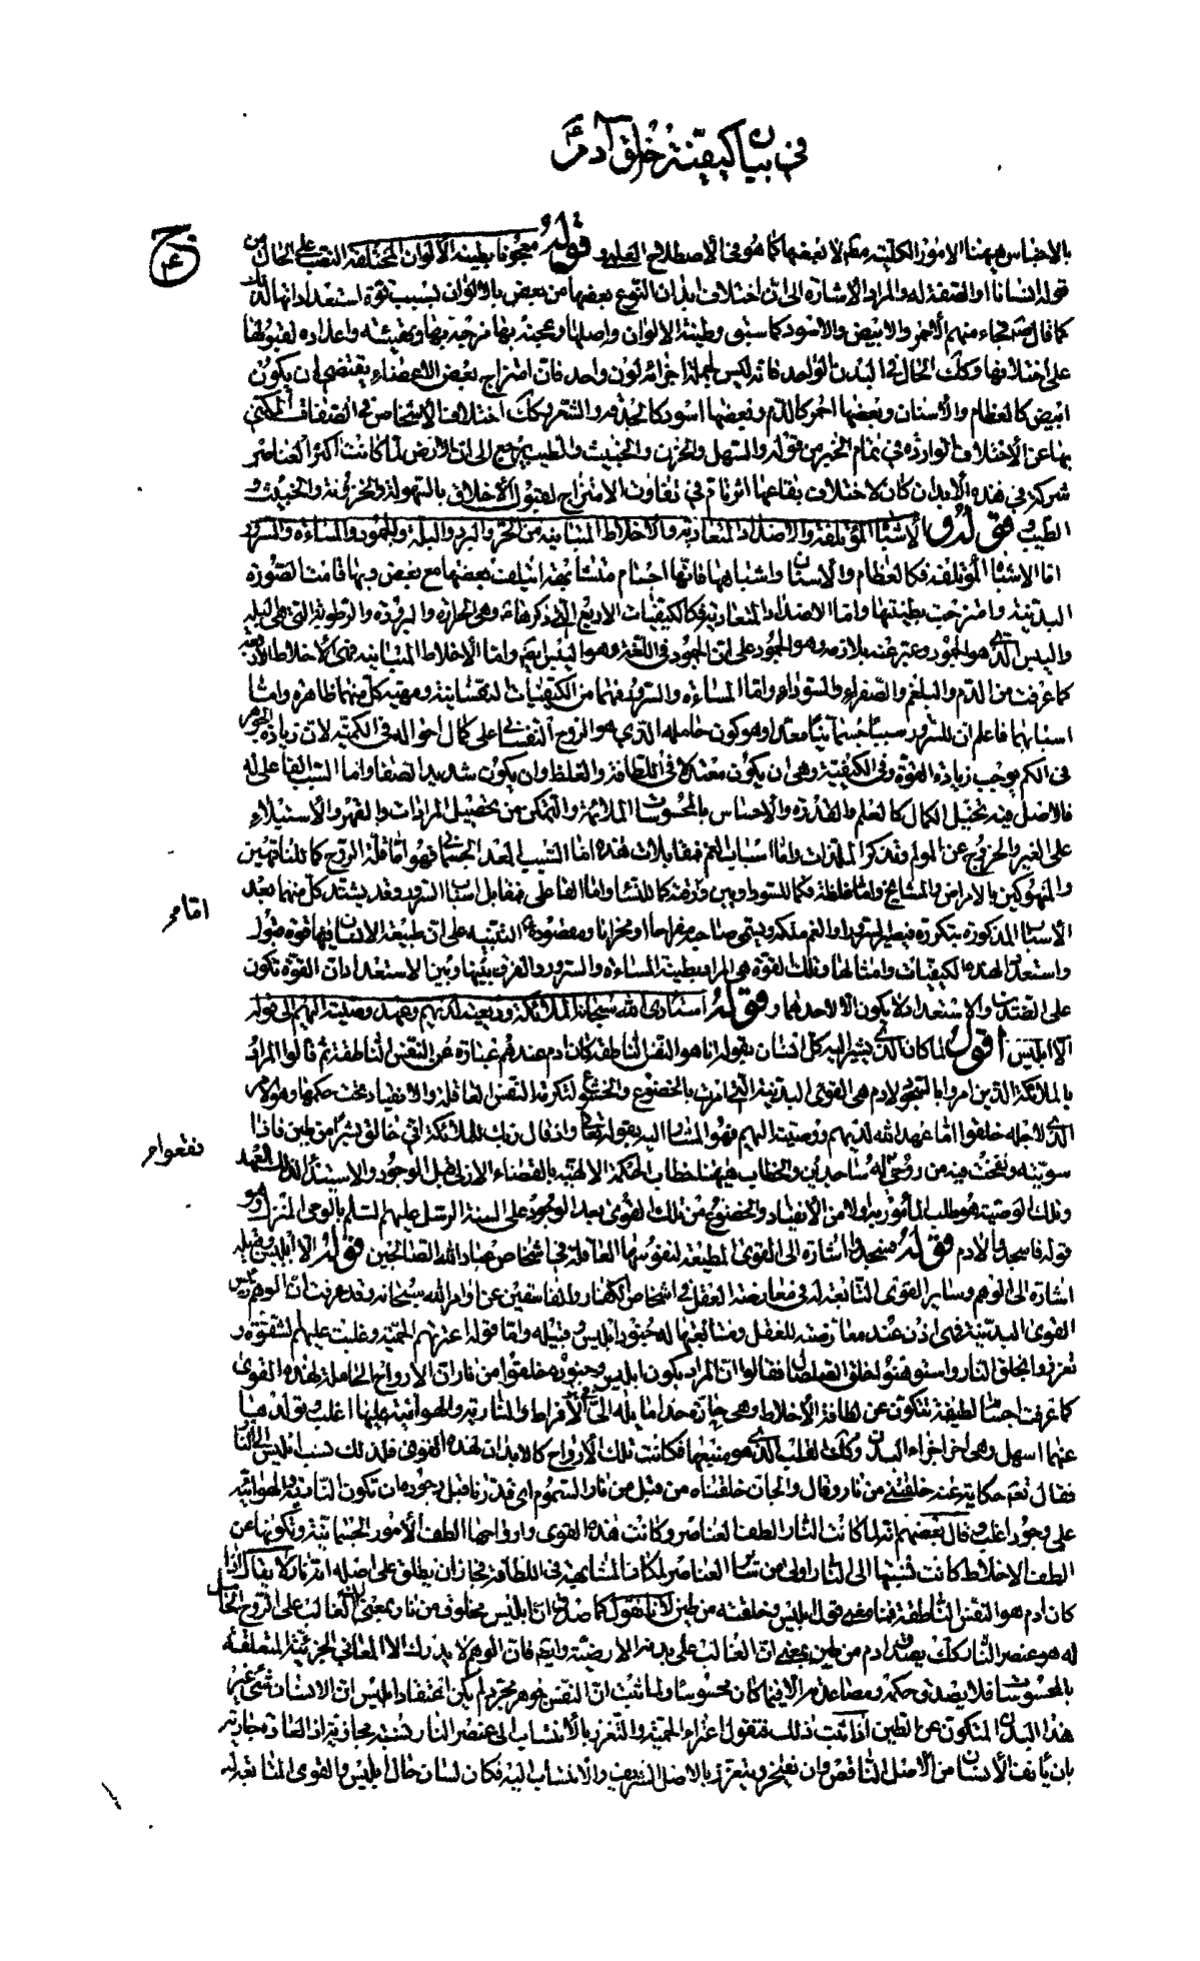 في بيان كيفية خلق آدم ع
بالاجناس ههنا الامور الكلية مطلقا لا بعضها كما هو في الاصطلاح العلمي وقوله معجونا بطينة الالوان المختلفة النصب على الحال من
قوله انسانا او الصفة له والمراد الاشارة الى ان اختلاف ابدان النوع بعضها من بعض بالالوان بسبب قوة استعداداتها لذلك
كما قال ص فجاء منهم الاحمر والابيض والاسود كما سبق وطينة الالوان واصلها وعجنه بها مزجه بها وتهيئته واعداده لقبولها
على اختلافها وكك الحال في البدن الواحد فانه ليس لجملة اجزائه لون واحد فان امتزاج بعض الاعضاء يقتضي ان يكون
ابيض كالعظام والاسنان وبعضها احمر كالدم وبعضها اسود كالحدقة والشعر وكك اختلاف الاشخاص في الصفات المكنى
بها عن الاختلاف الوارد في تمام الخبر من قوله والسهل والحزن والخبيث والطيب يرجع الى ان الارض لما كانت اكثر العناصر
شركة في هذه الابدان كان لاختلاف بقاعها اثر تام في تفاوت الامتزاج لقبول الاخلاق بالسهولة والحزنة والخبيث و
الطيب وقوله و الاشباه المؤتلفة والاضداد المتعادية والاخلاط المتباينة من الحر والبرد والبلة والجمود والمساءة والسرور
اما الاشباه المؤتلفة فكالعظام والاسنان واشباهها فانها اجسام متشابهة ايتلفت بعضها مع بعض وبها قامت الصورة
البدنية وامتزجت بطينتها واما الاضداد المتعادية فكالكيفيات الاربع التي ذكرها ع وهي الحرارة والبرودة والرطوبة التي هي البلة
واليبس الذي هو الجمود وعبر عنه بلازمه وهو الجمود على ان الجمود في اللغة هو اليبس ايض واما الاخلاط المتباينة فهي الاخلاط الاربعة
كما عرفت من الدم والبلغم والصفراء والسوداء واما المساءة والسرور فهما من الكيفيات النفسانية ومهية كل منهما ظاهرة واما
اسبابهما فاعلم ان للسرور سببا جسمانيا معدا وهو كون حامله الذي هو الروح النفساني على كمال احواله في الكمية لان زيادة الجوهر
في الكم يوجب زيادة القوة وفي الكيفية وهي ان يكون معتدلا في اللطافة والغلظ وان يكون شديد الصفاء واما السبب الفاعلي له
فالاصل فيه تخيل الكمال كالعلم والقدرة والاحساس بالمحسوسات الملائمة والتمكن من تحصيل المرادات والقهر والاستيلاء
على الغير والخروج عن المولم وتذكر الملذات واما اسباب الغم فمقابلات هذه اما السبب المعد الجسماني فهو اما قلة الروح كما للناقهين
والمنهوكين بالامراض والمشايخ واما غلظه فكما للسوداويين ورقته كما للنساء واما الفاعلي فمقابل اسباب السرور وقد يشتد كل منهما بعد
اما مر
الاسباب المذكورة بتكرره فيصير السرور او الغم ملكة ويسمى صاحبه مفراحا او محزانا ومقصوده ع التنبيه على ان طبيعة الانسان فيها قوة قبول
واستعداد لهذه الكيفيات وامثالها وتلك القوة هي المراد بطينة المساءة والسرور والفرق بينها وبين الاستعداد ان القوة تكون
على الضدين والاستعداد لا يكون الا لاحدهما وقوله استأدى الله سبحانه الملائكة وديعته لديهم وعهد وصيته اليهم الى قوله
الا ابليس اقول لما كان الذي يشير اليه كل انسان بقوله انا هو النفس الناطقة كان ادم عندهم عبارة عن النفس الناطقة ثم قالوا المراد
بالملائكة الذين امروا بالسجود لادم هي القوى البدنية التي امرت بالخضوع والخشوع لتكرمة النفس العاقلة والانقياد تحت حكمها وهو الامر
الذي لاجله خلقوا اما عهد الله لديهم ووصيته اليهم فهو المشار اليه بقوله تعالى واذ قال ربك للملائكة اني خالق بشرا من طين فاذا
سويته ونفخت فيه من روحي فقعوا له ساجدين والخطاب ههنا خطاب الحكمة الالهية بالقضاء الازلي قبل الوجود والاستيداء لذلك العهد
فقعوا مر
وتلك الوصية هو طلب المأمور به اولا من الانقياد والخضوع من تلك القوى بعد الوجود على السنة الرسل عليهم السلم بالوحي المنزل وهو
قوله فاسجدوا لادم قوله فسجدوا اشارة الى القوى المطيعة لنفوسها العاقلة في اشخاص عباد الله الصالحين قوله الا ابليس وقبيله
اشارة الى الوهم وساير القوى التابعة له في معارضة العقل في اشخاص الكفار والفاسقين عن اوامر الله سبحانه وقد عرفت ان الوهم رئيس
القوى البدنية فهي اذن عند معارضته للعقل ومتابعتها له جنود ابليس وقبيله واما قوله اعترتهم الحمية وغلبت عليهم الشقوة و
تعززوا بخلق النار واستوهنوا خلق الصلصال فقالوا ان المراد بكون ابليس وجنوده مخلوقا من نار ان الارواح الحاملة لهذه القوى
كما عرفت اجسام لطيفة تتكون عن لطافة الاخلاط وهي حارة جدا مايلة الى الافراط والنارية والهوائية عليها اغلب وتولدهما
عنها اسهل وهي اخر اجزاء البدن وكك القلب الذي هو منبعها فكانت تلك الارواح كالابدان لهذه القوى فلذلك نسب ابليس الى النار
فقال تعه حكاية عنه خلقتني من نار وقال والجان خلقناه من قبل من نار السموم اي قدرنا قبل وجوده ان تكون النارية والهوائية
على وجوده اغلب وقال بعضهم انه لما كانت النار الطف العناصر وكانت هذه القوى وارواحها الطف الامور الجسمانية وتكونها عن
الطف الاخلاط كانت نسبتها الى النار اولى من سائر العناصر لمكان المشابهة في اللطافة فجاز ان يطلق على اصله انه نار لا يقال اذا
كان ادم هو النفس الناطقة فما معنى قول ابليس وخلقته من طين لانا نقول كما صدق ان ابليس مخلوق من نار بمعنى ان الغالب على الروح الحامل
له هو عنصر النار كك يصدق ان ادم من طين بمعنى ان الغالب على بدنه الارضية وايض فان الوهم لا يدرك الا المعاني الجزئية المتعلقة
بالمحسوسات فلا يصدق حكمه ومساعدته الا فيما كان محسوسا ولما ثبت ان النفس جوهر مجرد لم يكن اعتقاد ابليس ان الانسان شيء غير
هذا البدن المتكون عن الطين اذا ثبت ذلك فنقول اعتراء الحمية والتعزز بالانتساب الى عنصر النار نسبة مجازية اذ العادة جارية
بان يأنف الانسان من الاصل الناقص وان يفتخر ويتعزز بالاصل الشريف والانتساب اليه فكان لسان حال ابليس والقوى المتابعة له